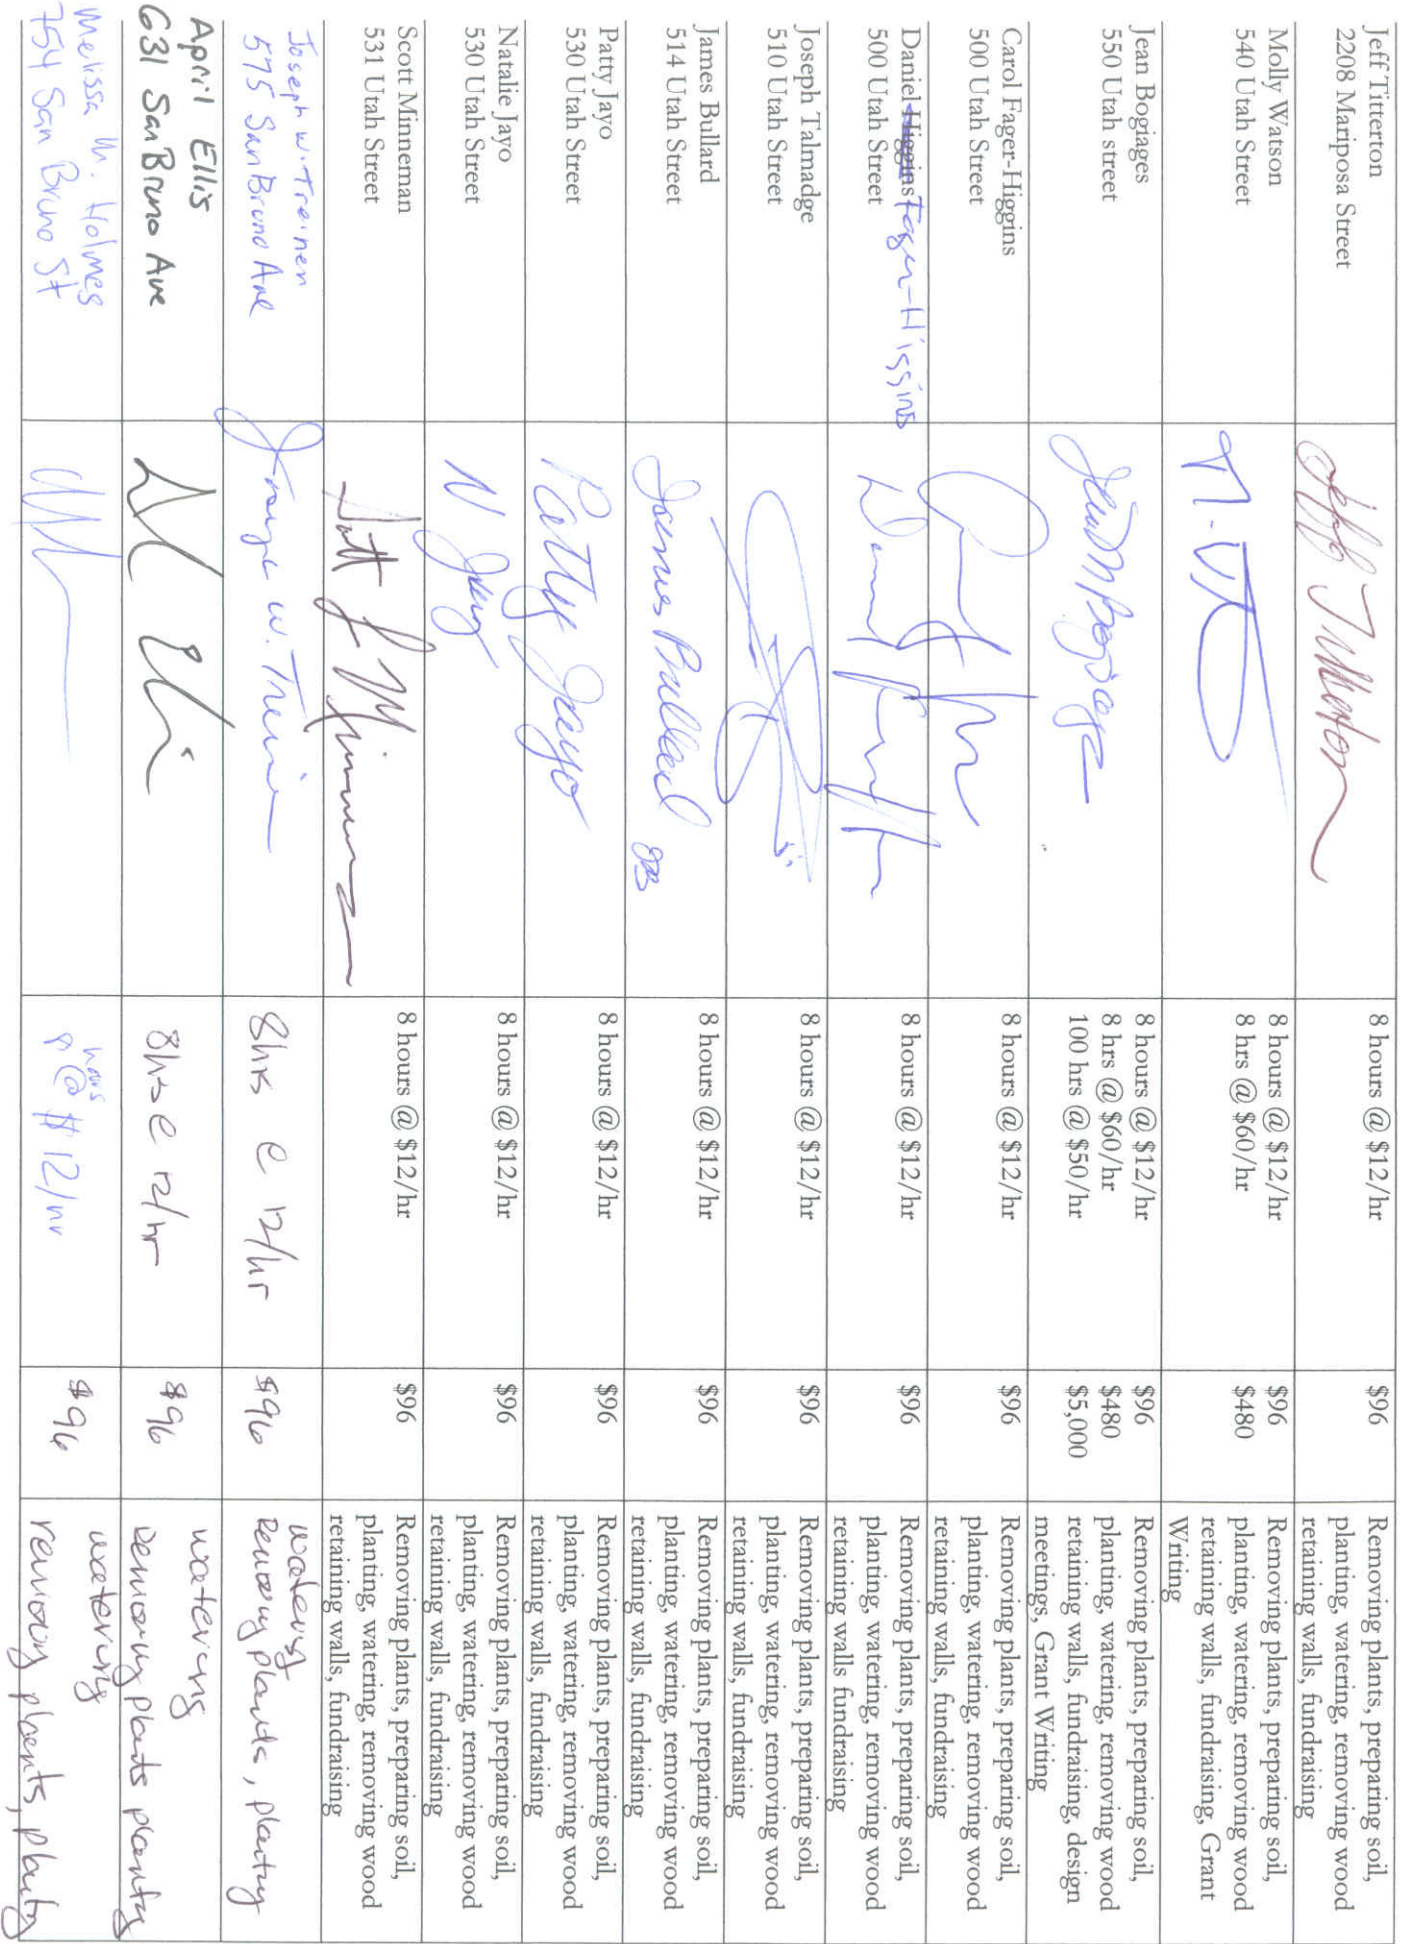 Jeff Titterton
2208 Mariposa Street
8 hours @ $12/hr
$96
Removing plants, preparing soil,
planting, watering, removing wood
retaining walls, fundraising
Molly Watson
540 Utah Street
8 hours @ $12/hr
8 hrs @ $60/hr
$96
$480
Removing plants, preparing soil,
planting, watering, removing wood
retaining walls, fundraising, Grant
Writing
Jean Bogiages
550 Utah street
8 hours @ $12/hr
8 hrs @ $60/hr
100 hrs @ $50/hr
$96
$480
$5,000
Removing plants, preparing soil,
planting, watering, removing wood
retaining walls, fundraising, design
meetings, Grant Writing
Carol Fager-Higgins
500 Utah Street
8 hours @ $12/hr
$96
Removing plants, preparing soil,
planting, watering, removing wood
retaining walls, fundraising
Daniel Higgins Fager-Higgins
500 Utah Street
8 hours @ $12/hr
$96
Removing plants, preparing soil,
planting, watering, removing wood
retaining walls fundraising
Joseph Talmadge
510 Utah Street
8 hours @ $12/hr
$96
Removing plants, preparing soil,
planting, watering, removing wood
retaining walls, fundraising
James Bullard
514 Utah Street
James Bullard
8 hours @ $12/hr
$96
Removing plants, preparing soil,
planting, watering, removing wood
retaining walls, fundraising
Patty Jayo
530 Utah Street
Patty Jayo
8 hours @ $12/hr
$96
Removing plants, preparing soil,
planting, watering, removing wood
retaining walls, fundraising
Natalie Jayo
530 Utah Street
N Jayo
8 hours @ $12/hr
$96
Removing plants, preparing soil,
planting, watering, removing wood
retaining walls, fundraising
Scott Minneman
531 Utah Street
8 hours @ $12/hr
$96
Removing plants, preparing soil,
planting, watering, removing wood
retaining walls, fundraising
Joseph W. Treinen
575 San Bruno Ave
8hrs @ 12/hr
$96
watering
Removing plants, planting
April Ellis
631 San Bruno Ave
8hrs @ 12/hr
$96
watering
Removing plants planting
Melissa M. Holmes
754 San Bruno St
hours
8 @ $12/hr
$96
watering
removing plants, planting